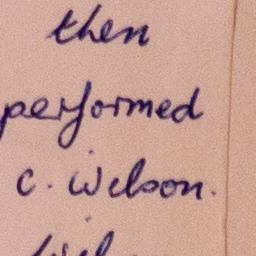 then
performed
C. Wilson.